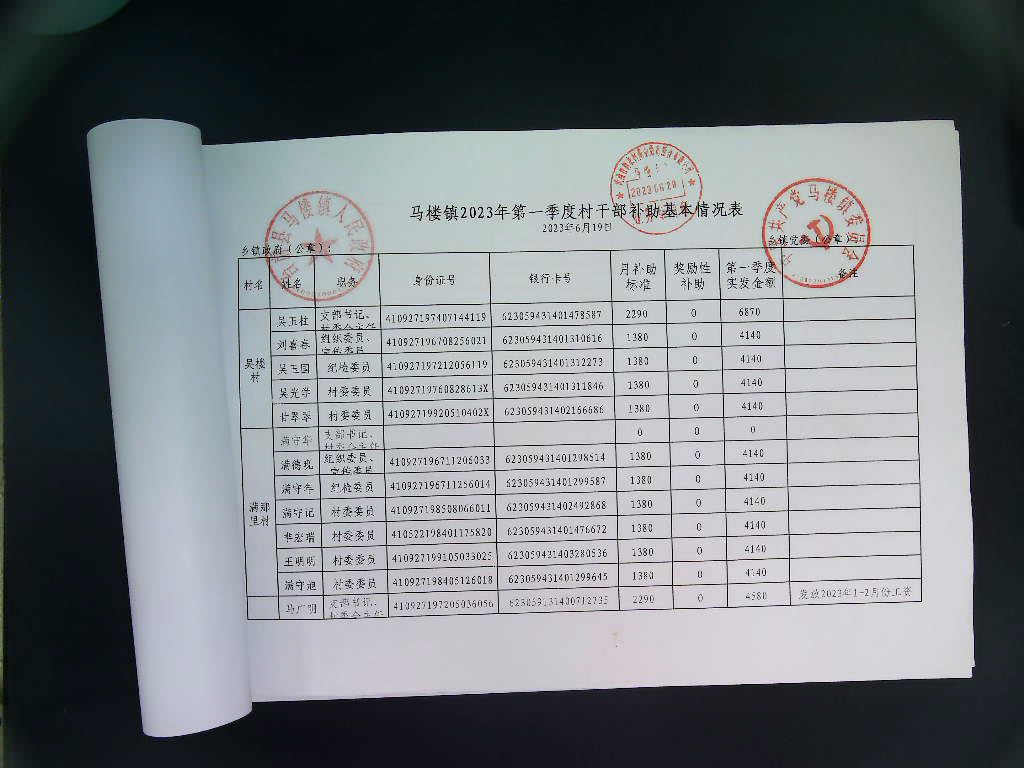 马楼镇2023年第一季度村干部补助基本情况表
2023年6月19日
乡镇政府（公章）： 乡镇党委（公章）
村名 姓名 职务 身份证号 银行卡号 月补助标准 奖励性补助 第一季度实发金额 备注
吴楼村 吴玉柱 支部书记、村委会主任 410927197407144119 623059431401478587 2290 0 6870
刘喜春 组织委员、宣传委员 410927196708256021 623059431401310616 1380 0 4140
吴玉国 纪检委员 410927197212056119 623059431401312273 1380 0 4140
吴光学 村委委员 41092719760828613X 623059431401311846 1380 0 4140
翠翠 村委委员 41092719920510402X 623059431402166686 1380 0 4140
满那里村 满守华 支部书记、村委会主任 0 0 0
满德现 组织委员、宣传委员 410927196711206033 623059431401298514 1380 0 4140
满守 纪检委员 410927196711256014 623059431401299587 1380 0 4140
满守记 村委委员 410927198508066011 623059431402492868 1380 0 4140
瑞 村委委员 410522198401175820 623059431401476672 1380 0 4140
王明明 村委委员 410927199105033025 623059431403280536 1380 0 4140
满守旭 村委委员 410927198405126018 623059431401299645 1380 0 4140
马广明 支部书记、村委会主任 410927197206036056 623059131400712735 2290 0 4580 发放2023年1-2月份工资
台前县马楼镇人民政府
2023.06.20
中国共产党马楼镇委员会